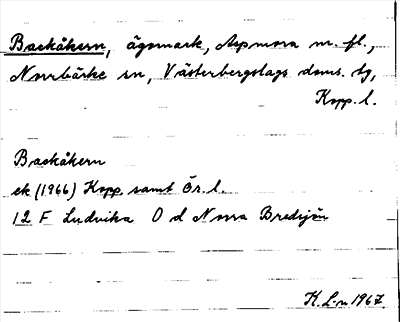 Backåkern, ägomark, Aspmora m. fl.,
Norrbärke sn, Västerbergslags doms. tg,
Kopp. l.
Backåkern
ek (1966) Kopp. samt Ör. l.
12 F Ludvika O d Norra Bredsjön
K. L-n 1967.